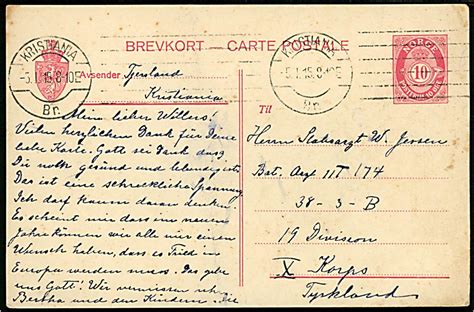 BREVKORT – CARTE POSTALE
KRISTIANIA
-5.I.15.8-10E
Br.
KRISTIANIA
-5.I.15.8-10E
Br.
NORGE
10
Avsender Fjersland
Kristiania
Til
Mein lieber Willers.
Vielen herzlichen Dank für Deine
liebe Karte. Gott sei Dank dass
Du noch gesund und lebendig
Das ist eine schreckliche Spannung
Ich darf kaum daran denken.
Es scheint mir dass im neuen
Jahre können wir alle nur einen
Wunsch haben, dass es Fried in
Europa werden muss. Das gebe
uns Gott! Wir vermissen sehr
Bertha und den Kindern. Die
Herrn Stabsarzt W. Jensen
Bat. Arzt III T 174
38 - 3 - B
19 Division
X Korps
Tyrkland